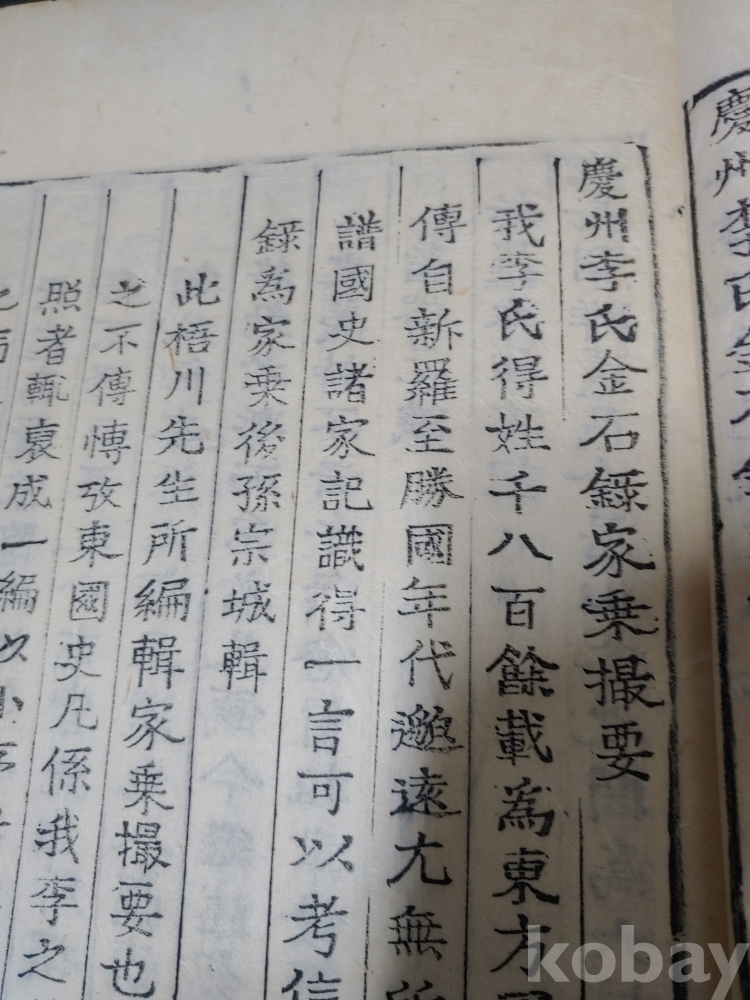 慶州李氏金
慶州李氏金石録家乗撮要
我李氏得姓千八百餘載為東方
傳自新羅至勝國年代邈遠尤無所
譜國史諸家記識得一言可以考信
録為家乗後孫宗城輯
此梧川先生所編輯家乗撮要也
之不傳愽攷東國史凡係我李之
照者輒裒成一編以小
kobay